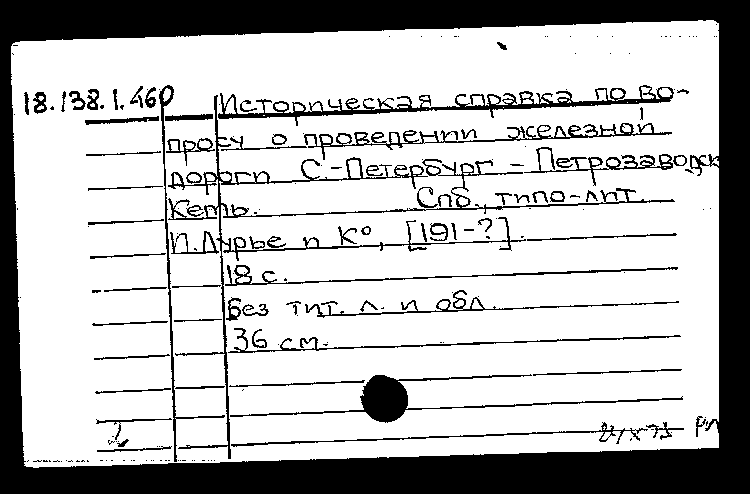 18.138.1.460 Историческая справка по во-
просу о проведении железной
дороги С.-Петербург – Петрозаводск
Кемь. Спб., типо-лит.
И. Лурье и К°, [191-?].
18 с.
Без тит. л. и обл.
36 см.
2